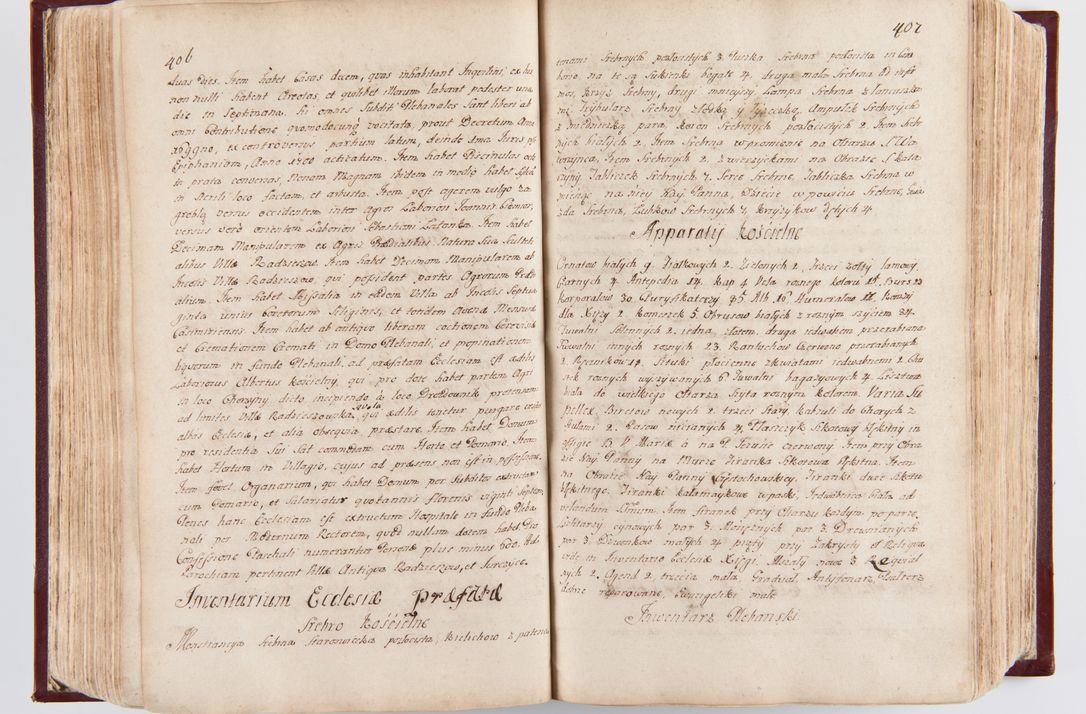 406
duas dies. Item habet Casas decem, quas inhabitant Inquilini, ex his
non nulli habent Areolas, et quilibet illorum laborat pedester una
die in Septimana. Hi omnes Subditi Plebanales sunt liberi ab
omni Contributione quomodocunq vocitata, prout Decretum Anno
ex controversiis partium latum, deinde
Epiphaniam, Anno 1700 acticatum. Item habet Piscinulas octo
in prata conversas, Nonam Magnam ibidem in medio habet
in sterili loco factam, et arbusta. Item post agerem vulgo za
groblą versus occidentem inter agros Laboriosi Joannis
versus vero orientem Laboriosi Sebastiani Item habet
Decimam Manipularem ex Agris Prædialibus Natura Sua Scultet
alibus Villæ Radzieszow. Item habet Decimam Manipularem ab
Incolis Villæ Radzieszow, qui possident partes Agrorum Præ
dialium. Item habet Missalia in eadem Villa ab Incolis Septua
ginta unius Coretorum Siliginis, et totidem Avenæ Mensuræ
Casimiriensis. Item habet ab antiquo liberam coctionem Cerevisiæ
et Cremationem Cremati in Domo Plebanali, et propinationem
liquorum in fundo Plebanali, ad præfatam Ecclesiam est ædilis
Laboriosus Albertus kościelny, qui pro dote habet partem Agri
in loco dicto incipiendo à loco protensam
ad limites Villæ Radzieszowska, qui ædilis tenetur purgare
albas Ecclesiæ, et alia obsequia præstare. Item habet Domum
pro residentia Sui sat commodam cum Horto et Pomario. Item
habet Hortum in Villagio, cujus ad præsens non est in possessione.
Item fovet Organarium, qui habet Domum per Subditos extructam
cum Pomario, et Salariatur quotannis florenis viginti Septem,
Penes hanc Ecclesiam est extructum Hospitale in fundo Pleba
nali per Modernum Rectorem, quod nullam dotem habet Pro
Confessione Paschali numerantur Personæ plus minus 600. Ad
Parochiam pertinent Villæ Antiqua Radzieszow, et Jurczyce.
Inventarium Ecclesiæ præfatæ
Srebro kościelne
Monstrancya srebrna staroświecka pozłocista, kielichow z patena
407
tenami srebrnych pozłocistych 3. Puszka srebrna pozłocista in Cim
borio, na te są Sukienki bogate 4. druga mała srebrna ad infir
mos, krzyż srebrny, drugi mnieyszy Lampa srebrna z lancuszka
mi, Trybularz srebrny złodką y łyżeczką, Ampułek srebrnych
z miedniczką para, koron srebrnych pozłocistych 2. Item srebr
nych białych 2. Item srebrna w promienie na Obrazie S. Wa
wrzynca, Item srebrnych 2. zwierzyckami na Obrazie S. Kata
rzyny Tabliczek srebrnych 7. serce srebrne, Tabliczka srebrna w
na niey Nay. Panna, Dziecie w powiciu srebrne, Gwia
zda srebrna, Lubkow srebrnych 7, krzyżykow dętych 4.
Apparaty kościelne
Ornatow białych 9. Fiałkowych 2. Zielonych 2. trzeci zołty lamowy,
Czarnych 4. Antepedia 14. kap 4 Vela roznego koloru 18. Burs 23
korporałow 30. Puryfikaterzy 45 Alb 16 Humerałow 12. komży
dla Xięży 2. komezek 5 Obrusow białych z roznym szyciem 34.
Tuwalni jedna złotem, druga iedwabiem przerabiana
Tuwalni innych roznych 23. Rantuchow Czerwono przerabianych
2. Ręcznikow 14. Sztuki płocienne z kwiatami iedwabnemi 2. Chu
stek roznych wyszywanych 6 Tuwalni bagazyowych 4. Lisztwa
biała do wielkiego Ołtarza szyta roznym kolorem. Varia Su
pellex, Biretow nowych 2. trzeci stary, kabzuli do Chorych z
stułami 2. Pasow nicianych 4, Płaszczyk Atłasowy błękitny in
effigie B. V. Mariæ à na P. Jezusie czerwony. Item przy Obra
zie Nay Panny na Murze Firanka kitaiowa błękitna. Item
na Obrazie Nay Panny Częstochowskiey, Firanki dwie kitaiu
błękitnego, Firanki kałamaykowe w paski, Jedwabnica biała ad
velandum Stium. Item firanek przy Ołtarzu każdym po parze,
Lichtarzy cynowych par 3. Mosiężnych par 3. Drewnianych
par 3. Dzwonkow małych 4. przy Zakrystyi et Reliqua
vide in Inventario Ecclesiæ Xięgi. Mszały nowe 3 Requiał
nych 2. Agend 2. trzecia mała, Graduał, Antyfonarz, Psałterz
dobrze reparowane, Ewangeliki małe
Inwentarz Plebanski